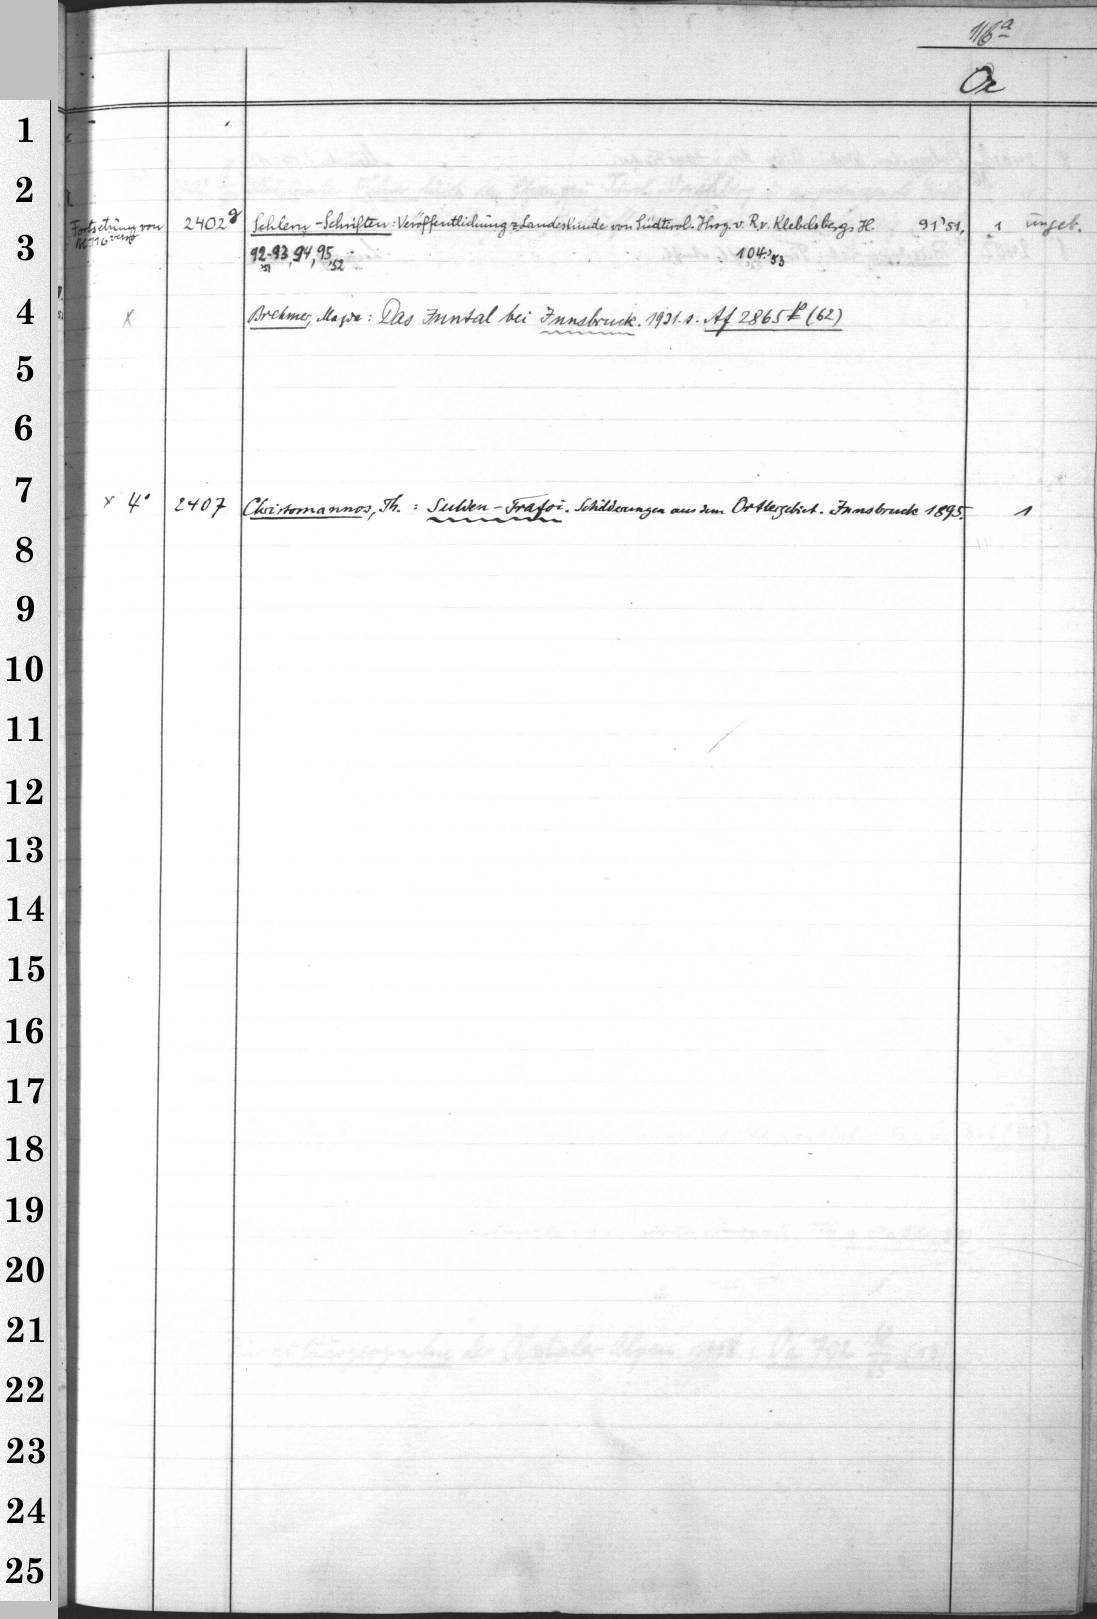 116a
Oe
1
2
Fortsetzung von 2402g Schlern-Schriften: Veröffentlichung z. Landeskunde von Südtirol. Hrsg. v. R. v. Klebelsberg. H. 91'51, 1 ungeb.
3 92-93'51, 94, 95'52 104'53
4 x Brehmer, Magda: Das Inntal bei Innsbruck. 1931. s. Af 2865 (62)
5
6
7 x 4° 2407 Christomannos, Th.: Sulden-Trafoi. Schilderungen aus dem Ortlergebiet. Innsbruck 1895. 1
8
9
10
11
12
13
14
15
16
17
18
19
20
21
22
23
24
25